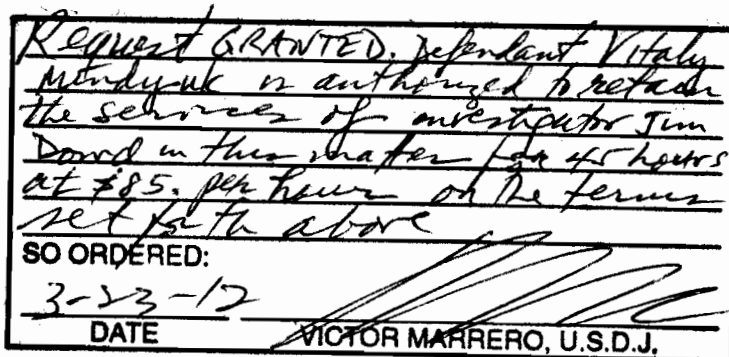 Request GRANTED. Defendant Vitaly
Mindyuk is authorized to retain
the services of investigator Jim
Dowd in this matter for 45 hours
at $85. per hour on the terms
set forth above
SO ORDERED:
3-23-12
DATE VICTOR MARRERO, U.S.D.J.